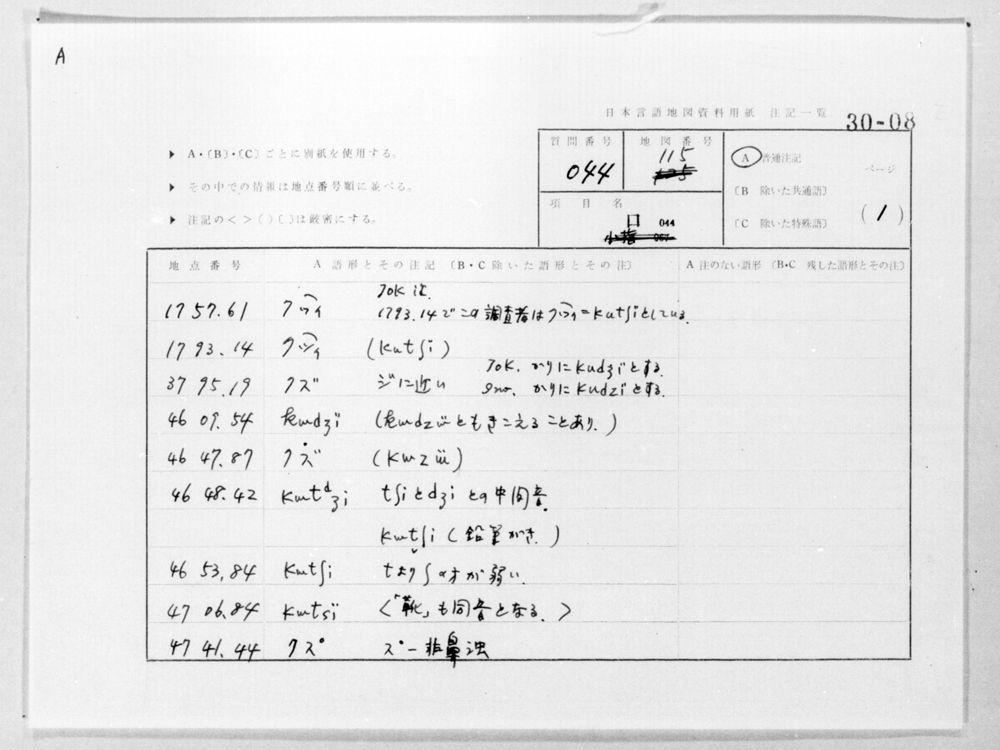 A
日本言語地図資料用紙 注記一覧 30-08
▶ A・〔B〕・〔C〕ごとに別紙を使用する。
▶ その中での情報は地点番号順に並べる。
▶ 注記の< >( )〔 〕は厳密にする。
質問番号 044
地図番号 115
項目名
口 044
小指 067
A 普通注記
〔B 除いた共通語〕
〔C 除いた特殊語〕
ページ
( 1 )
地点番号 A 語形とその注記〔B・C 除いた語形とその注〕 A 注のない語形〔B・C 残した語形とその注〕
TOK は
17 57.61 クヮィ 1793.14でこの調査者はクヮィ=kutʃiとしている。
17 93.14 (kutʃi)
TOK. かりにkudʒïとする。
37 95.19 クズ ジに近い かりにkudzïとする。
46 09.54 kɯdʒï (kɯdzɯ̈ともきこえることあり.)
46 47.87 クズ (kɯzɯ̈)
46 48.42 kɯtᵈʒi tʃiとdʒiとの中間音.
kɯtʃi (鉛筆がき.)
46 53.84 kɯtʃi tよりʃの方が弱い.
47 06.84 kɯtsï <「靴」も同音となる.>
47 41.44 クス゚ ス゚ー非鼻濁